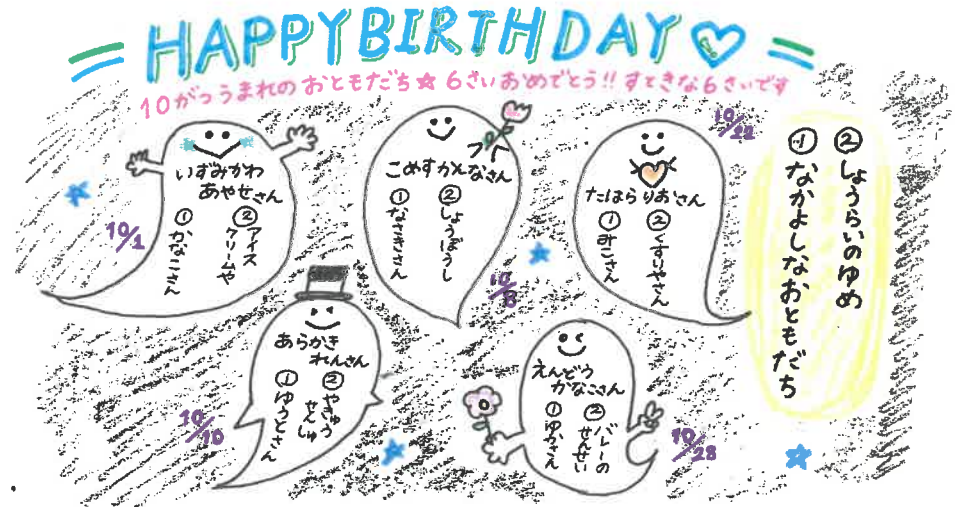 HAPPY BIRTHDAY
10がつうまれの おともだち☆ 6さいおめでとう!! すてきな6さいです
10/1
いずみかわ
あやせさん
①かなこさん
②アイス
クリームや
10/8
こめすかんなさん
①なさきさん
②しょうぼうし
10/22
たはらりおさん
①みこさん
②くすりやさん
①なかよしなおともだち
②しょうらいのゆめ
10/10
あらかき
れんさん
①ゆうとさん
②やきゅう
せんしゅ
10/28
えんどう
かなこさん
①ゆかさん
②バレーの
せんせい